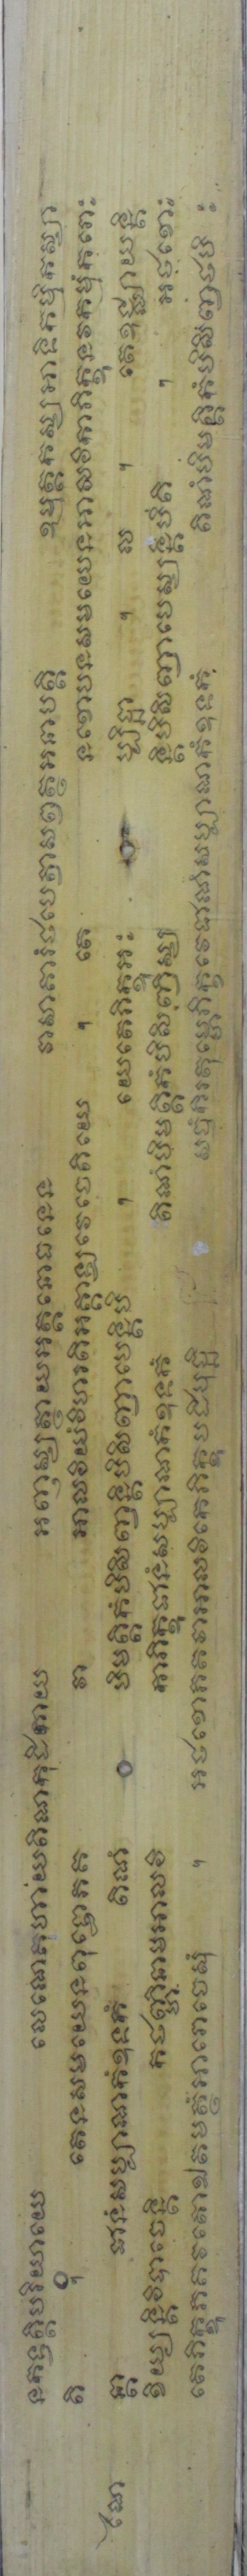 នកទ្ធត្តិបរិយាយេ លេណេតុហាយតិណកុដិកាយ អញស្សត្ថាយអត្តនោធនេន វាសាគារំថបេត្វាសព្វត្ថអនាបត្តិ ឧម្មត្តកស្សអាទិកម្មិកស្សា
តិ ។ តេនសមយេនពុទ្ធោភគ វា អាលវិយំវិហរតិអគ្គាឡវេចេតិយេ ។ តេ នខោបនសមយេនអាលវិកាភិក្ខូនវកម្មំករោះ
ណែ ន្តា ជានំសប្បាណកំឧទកំ តិណំ បិមត្តិកំបិសិញន្តិបិសិញាបេន្តិបិ ។ យេតេភិក្ខូអះ ប្បិច្ឆា ។ ល ។ តេឧជ្ឈាយន្តិ
ខិយ្យន្តិវិបាចេន្តិ កថញ្ហិនាមអាលវិ កាភិក្ខូជានំសប្បាណកំឧទកំ តិណំបិមត្តិកំបិសិញិស្ស ន្តិបិសិញាបេស្សន្តិបីតិ ។ អថខោះ
តេភិក្ខូភគវតោឯតមត្ថំអារោចេសុំ ។ អថខោភគវាអាលវិកេភិក្ខូបដិបុច្ឆិ សច្ចំកិរតុម្ហេភិក្ខវេជានំសប្បាណកំឧទកំ តិណំបិមត្តិកំបិសិញថបិ ះ